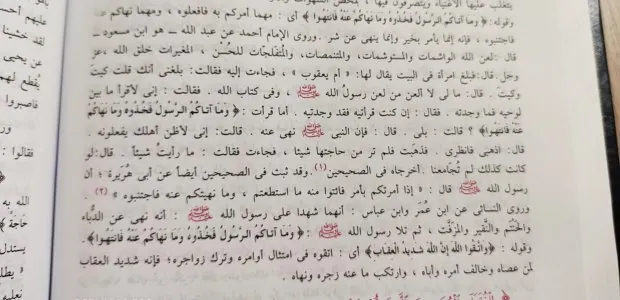 يتغلب عليها الأغنياء ويتصرفون فيها، بمحض الشهوات
وقوله: ﴿وَمَا آتَاكُمُ الرَّسُولُ فَخُذُوهُ وَمَا نَهَاكُمْ عَنْهُ فَانْتَهُوا﴾ أى : مهما أمركم به فافعلوه ، ومهما نهاكم
فاجتنبوه ، فإنه إنما يأمر بخير وإنما ينهى عن شر . وروى الإمام أحمد عن عبد الله ـ هو ابن مسعود ـ
قال : لعن الله الواشمات والمستوشمات، والمتنمصات، والمتفلجات للحُسْن ، المغيرات خلق الله ،عز
وجل.قال:فبلغ امرأة فى البيت يقال لها: « أم يعقوب » ، فجاءت إليه فقالت: بلغنى أنك قلت كيت
وكيت . قال: ما لى لا ألعن من لعن رسول الله ﷺ ، وفى كتاب الله . فقالت: إنى لأقرأ ما بين
لوحيه فما وجدته . فقال: إن كنت قرأتيه فقد وجدتيه . أما قرأت: ﴿وَمَا آتَاكُمُ الرَّسُولُ فَخُذُوهُ وَمَا نَهَاكُمْ
عَنْهُ فَانْتَهُوا﴾ ؟ قالت : بلى . قال : فإن النبى ﷺ نهى عنه . قالت: إنى لأظن أهلك يفعلونه .
قال: اذهبى فانظرى . فذهبت فلم تر من حاجتها شيئا ، فجاءت فقالت : ما رأيتُ شيئاً . قال:لو
كانت كذلك لم تُجامعنا .أخرجاه فى الصحيحين(١).وقد ثبت فى الصحيحين أيضاً عن أبى هُرَيرة ؛ أن
رسول الله ﷺ قال : « إذا أمرتكم بأمر فائتوا منه ما استطعتم ، وما نهيتكم عنه فاجتنبوه » (٢) .
وروى النسائى عن ابن عُمَر وابن عباس : أنهما شهدا على رسول الله ﷺ : أنه نهى عن الدُّباء
والحَنْتَم والنَّقير والمزفَّت ، ثم تلا رسول الله ﷺ :﴿وَمَا آتَاكُمُ الرَّسُولُ فَخُذُوهُ وَمَا نَهَاكُمْ عَنْهُ فَانْتَهُوا﴾.
وقوله : ﴿وَاتَّقُوا اللَّهَ إِنَّ اللَّهَ شَدِيدُ الْعِقَابِ﴾ أى : اتقوه فى امتثال أوامره وترك زواجره؛ فإنه شديد العقاب
لمن عصاه وخالف أمره وأباه ، وارتكب ما عنه زجره ونهاه .
عليهم أحمر
لقد خشينا
عن يحيى
يُقطع لهم
فاصبروا
فقالوا :
الله به
حَاجَةً
يستدل